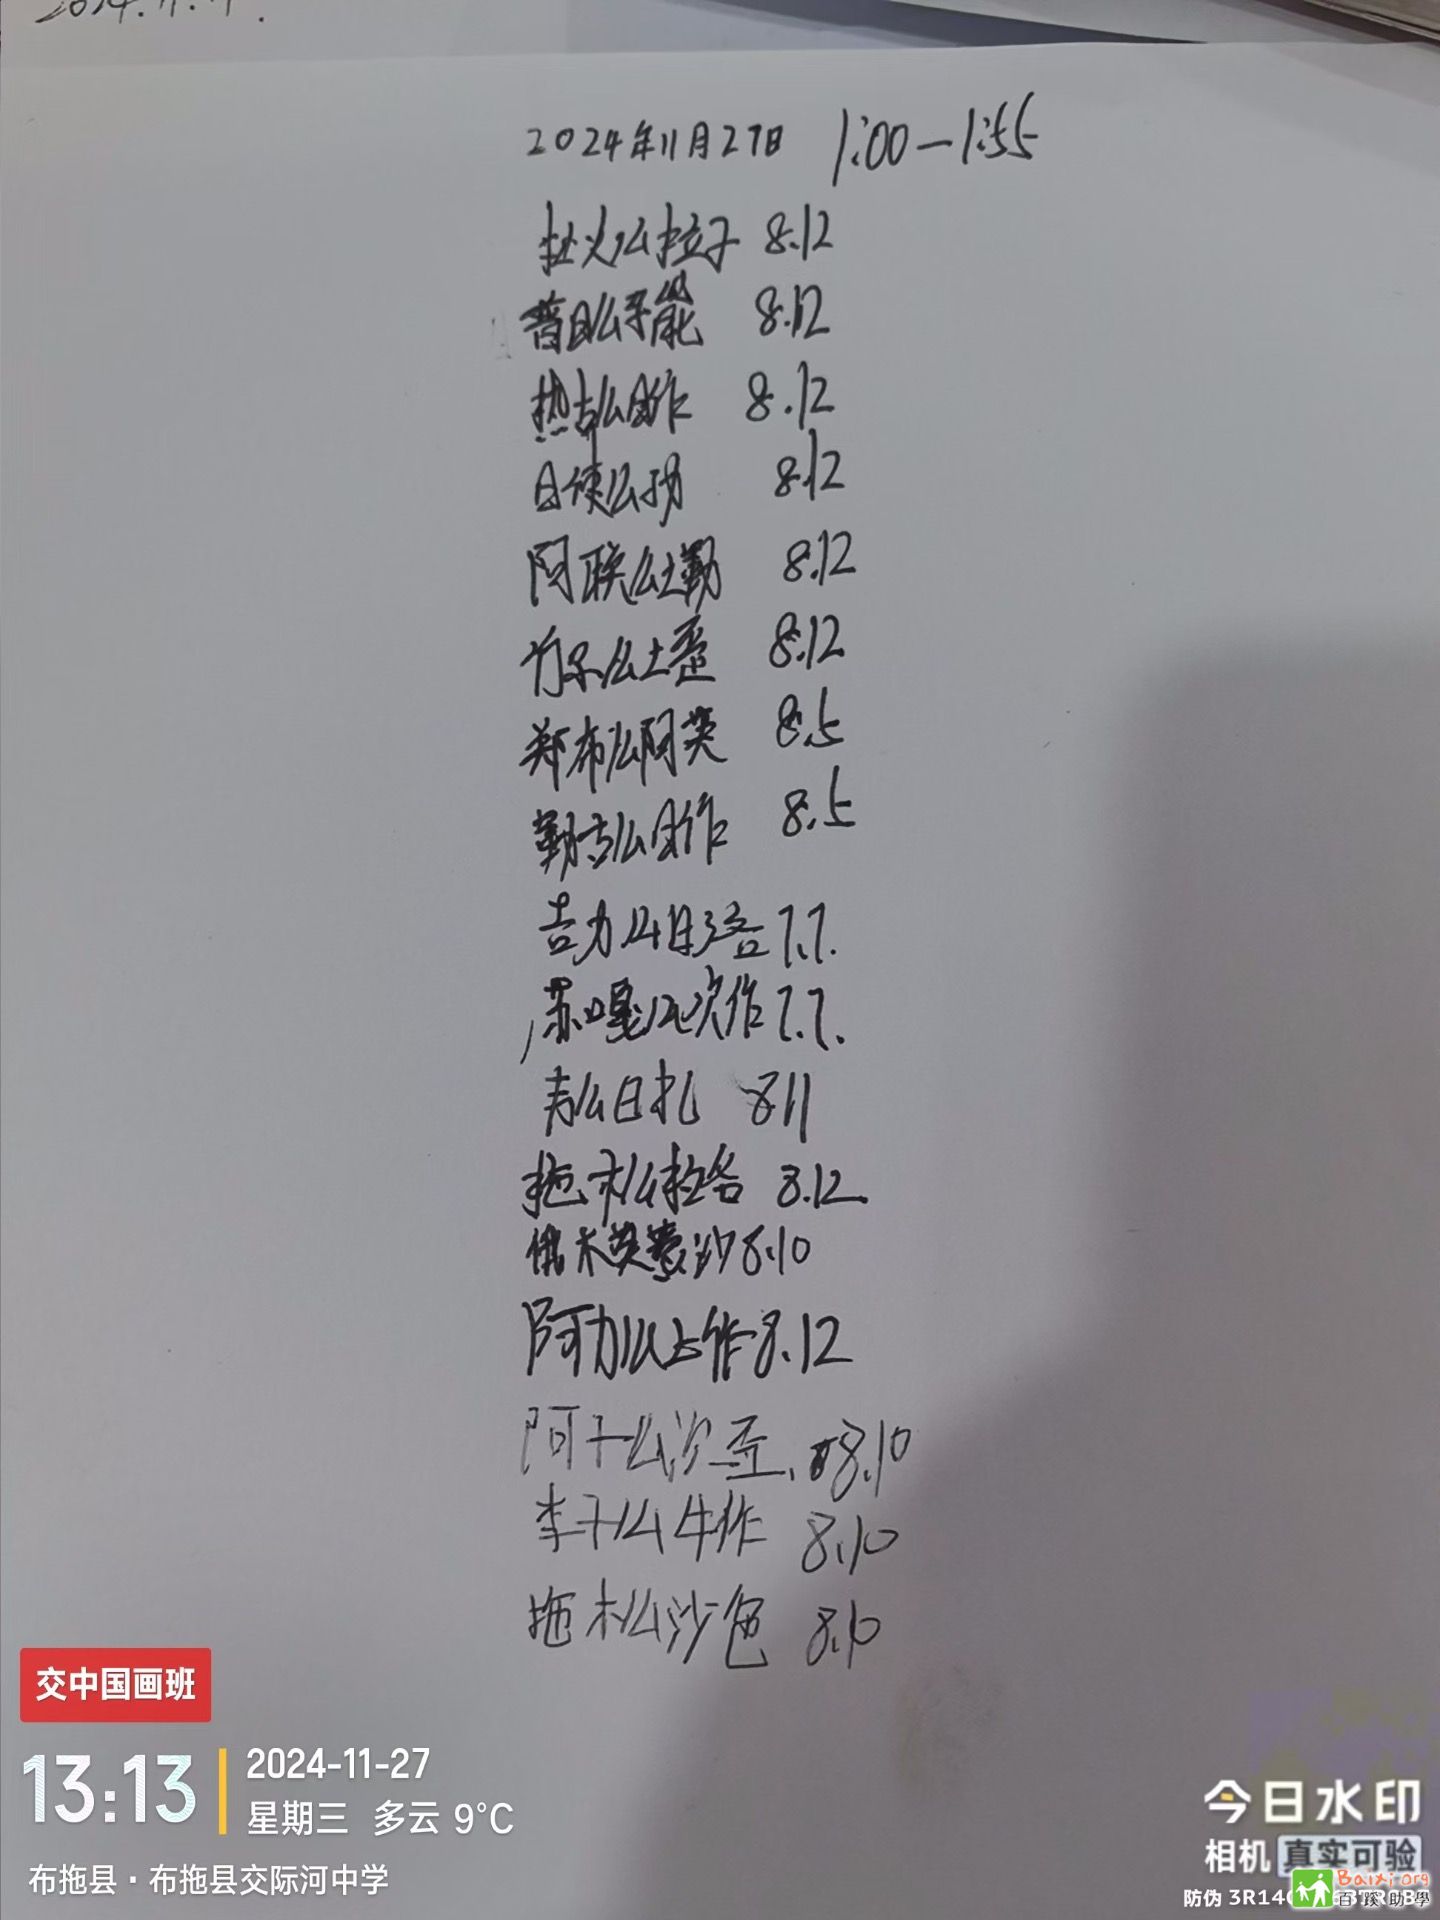 2024年11月27日 1:00-1:55
扯火么拉子 8.12
普日么子能 8.12
热古么日作 8.12
日使么 8.12
阿联么土勤 8.12
么土歪 8.12
郑布么阿英 8.5
勒古么日作 8.5
吉力么日 7.7.
苏嘎么次作 7.7.
么日扎 8 11
拖木么拉各 8.12
俄木英 沙 8.10
阿力么 作 8.12
阿干么沙歪 8.10
李子么牛作 8.10
拖木么沙色 8.10
交中国画班
13:13
2024-11-27
星期三 多云 9°C
布拖县·布拖县交际河中学
今日水印
相机 真实可验
防伪 3R14
Baixi.org
百蹊助學